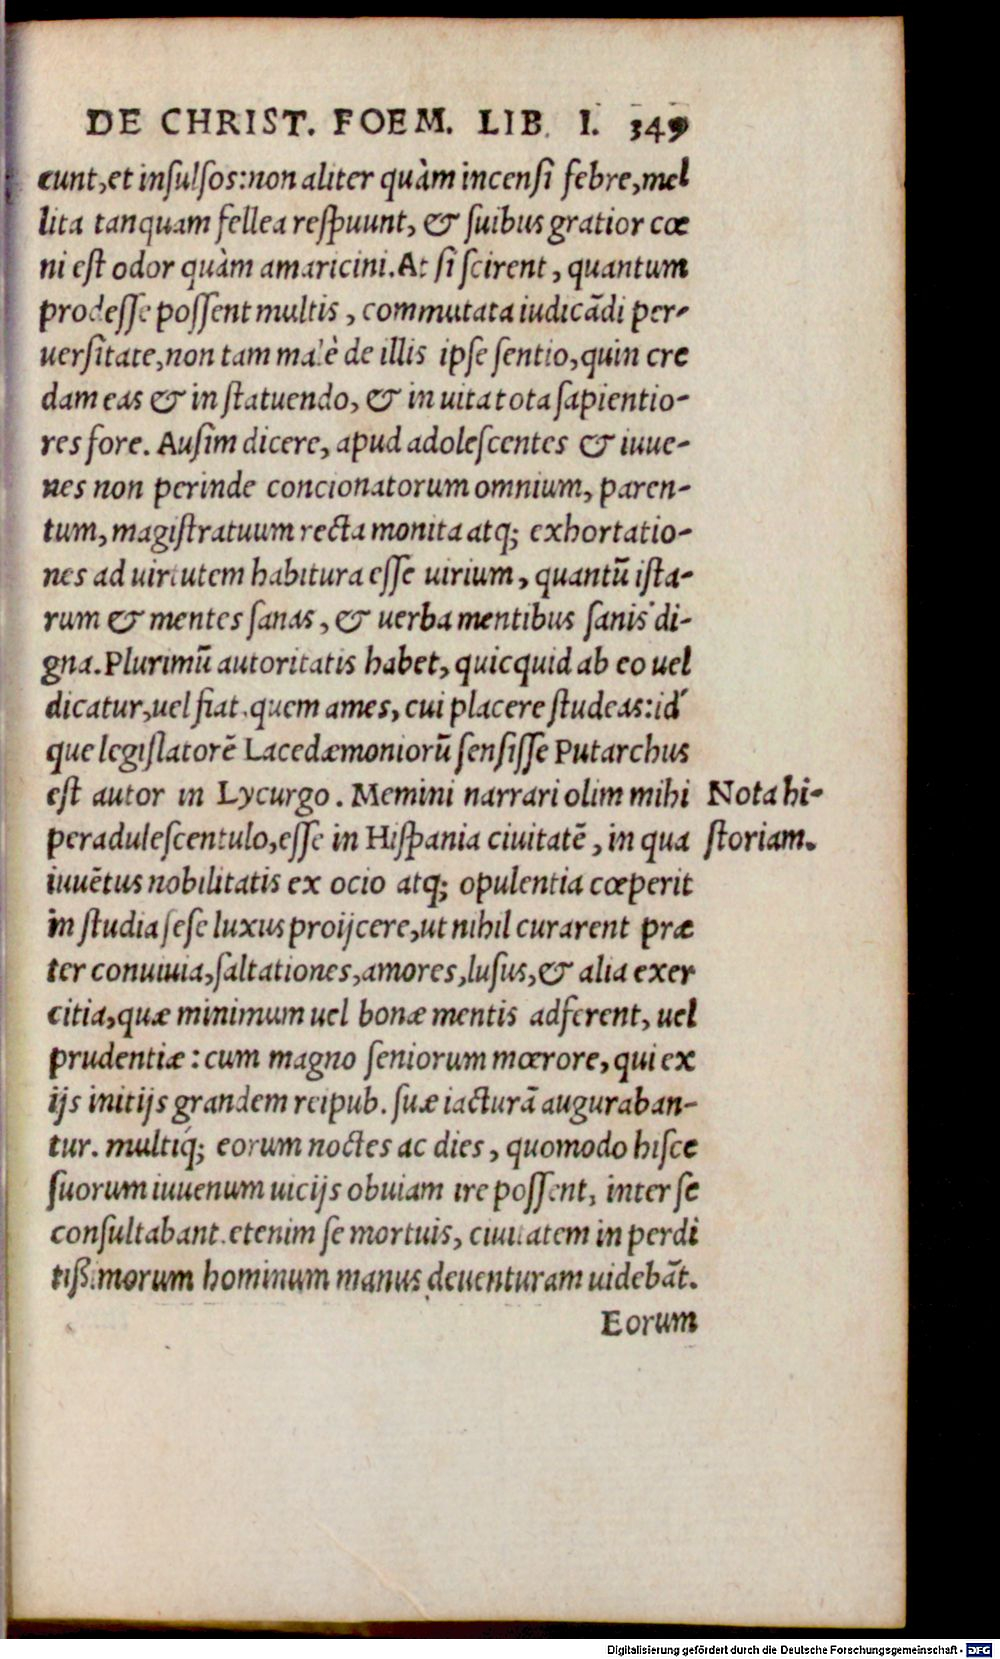 DE CHRIST. FOEM. LIB. I. 349
cunt,et insulsos:non aliter quàm incensi febre,mel
lita tanquam fellea respuunt, & suibus gratior cœ
ni est odor quàm amaricini. At si scirent, quantum
prodesse possent multis, commutata iudicãdi per-
uersitate,non tam malè de illis ipse sentio,quin cre
dam eas & in statuendo, & in uita tota sapientio-
res fore. Ausim dicere, apud adolescentes & iuue-
nes non perinde concionatorum omnium, paren-
tum, magistratuum recta monita atq; exhortatio-
nes ad uirtutem habitura esse uirium, quantũ ista-
rum & mentes sanas, & uerba mentibus sanis di-
gna. Plurimũ autoritatis habet, quicquid ab eo uel
dicatur,uel fiat, quem ames, cui placere studeas: id
que legislatorẽ Lacedæmoniorũ sensisse Putarchus
est autor in Lycurgo. Memini narrari olim mihi
Nota hi-
peradulescentulo,esse in Hispania ciuitatẽ, in qua
storiam.
iuuẽtus nobilitatis ex ocio atq; opulentia cœperit
in studia sese luxus proijcere,ut nihil curarent præ
ter conuiuia,saltationes,amores,lusus,& alia exer
citia,quæ minimum uel bonæ mentis adferent, uel
prudentiæ: cum magno seniorum mœrore, qui ex
ijs initijs grandem reipub. suæ iacturã auguraban-
tur. multiq́; eorum noctes ac dies, quomodo hisce
suorum iuuenum uicijs obuiam ire possent, inter se
consultabant. etenim se mortuis, ciuitatem in perdi
tißimorum hominum manus deuenturam uidebãt.
Eorum
Digitalisierung gefördert durch die Deutsche Forschungsgemeinschaft - DFG